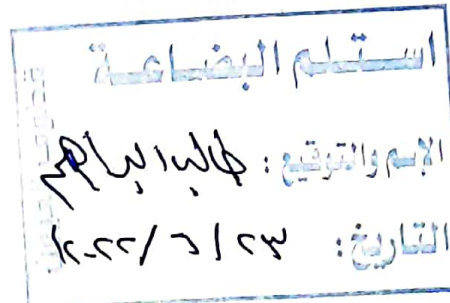 استلم البضاعة
الإسم والتوقيع : طالب ابراهيم
التاريخ: ٢٣ / ٦ / ٢٠٢٢